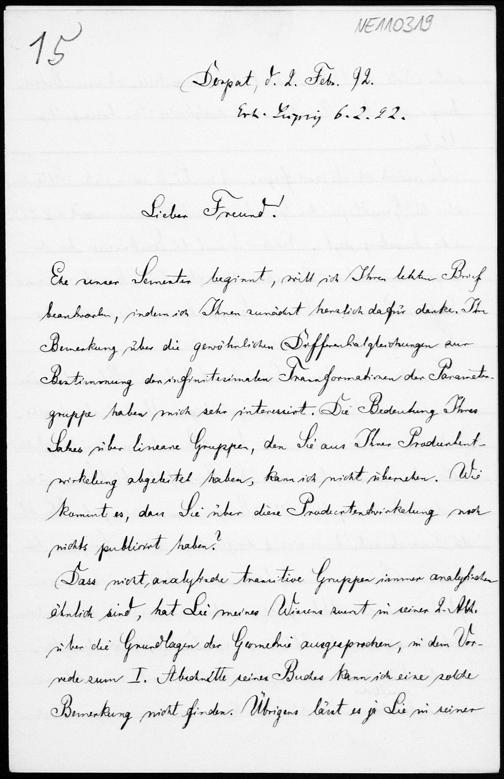 15
NE110319
Dorpat, d. 2. Feb. 92.
Erh. Leipzig 6.2.92.
Lieber Freund!
Ehe unser Semester beginnt, will ich Ihren letzten Brief
beantworten, indem ich Ihnen zunächst herzlich dafür danke. Ihre
Bemerkung über die gewöhnlichen Differentialgleichungen zur
Bestimmung der infinitesimalen Transformationen der Parameter-
gruppe haben mich sehr interessirt. Die Bedeutung Ihres
Satzes über lineare Gruppen, den Sie aus Ihrer Productent-
wickelung abgeleitet haben, kann ich nicht übersehen. Wie
kommt es, dass Sie über diese Productentwickelung noch
nichts publicirt haben?
Dass nicht analytische transitive Gruppen immer analytischen
ähnlich sind, hat Lie meines Wissens zuerst in seiner 2. Abh.
über die Grundlagen der Geometrie ausgesprochen, in dem Vor-
rede zum I. Abschnitte seines Buches kann ich eine solche
Bemerkung nicht finden. Übrigens lässt es ja Lie in seiner